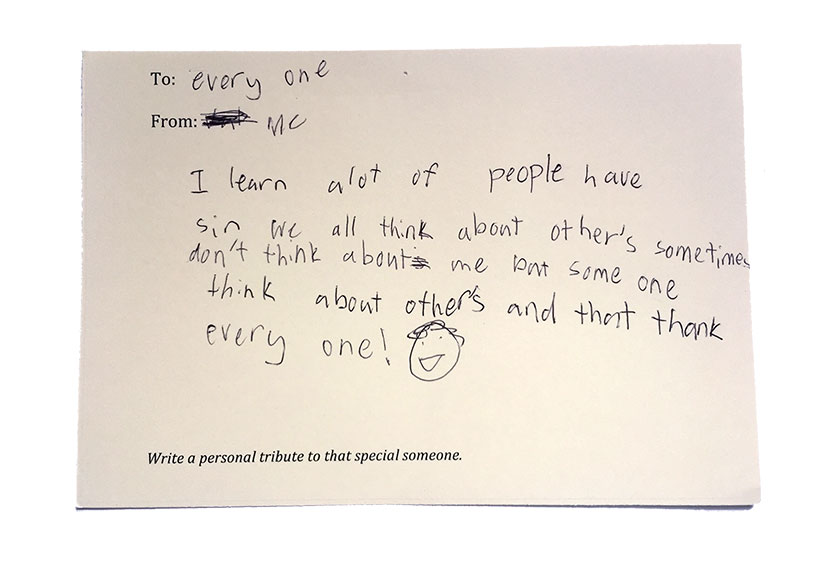 To: every one
From: MC
I learn alot of people have
sin we all think about other's sometimes
don't think about me but some one
think about other's and that thank
every one!
Write a personal tribute to that special someone.